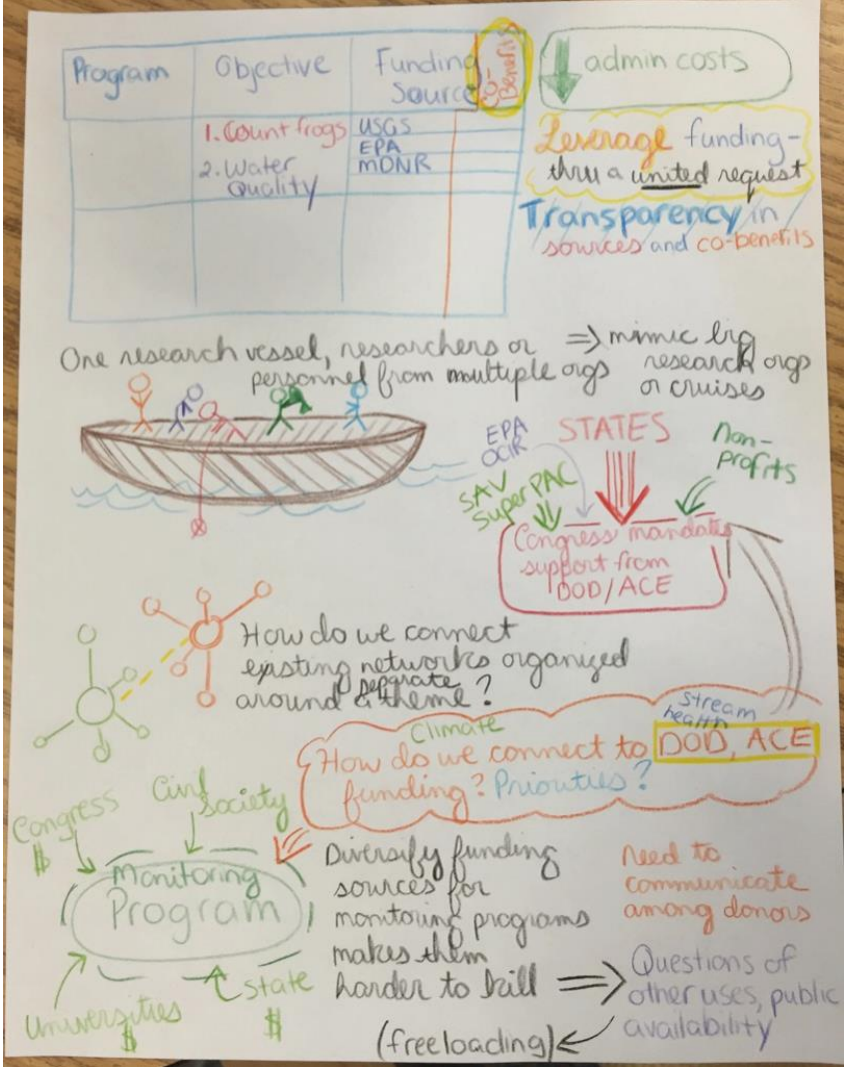 Program
Objective
Funding
Source
Co-
Benefits
1. Count frogs
2. Water
Quality
USGS
EPA
MDNR
admin costs
Leverage funding-
thru a united request
Transparency in
sources and co-benefits
One research vessel, researchers or
personnel from multiple orgs
⇒ mimic lrg
research orgs
or cruises
EPA
OCIR
STATES
Non-
profits
SAV
Super PAC
Congress mandates
support from
DOD/ACE
How do we connect
existing networks organized
around a separate theme?
Climate
stream
health
How do we connect to DOD, ACE
funding? Priorities?
Congress
$
Civil
society
Monitoring
Program
Universities
$
State
$
Diversify funding
sources for
monitoring programs
makes them
harder to kill ⇒
need to
communicate
among donors
Questions of
other uses, public
availability
(freeloading)